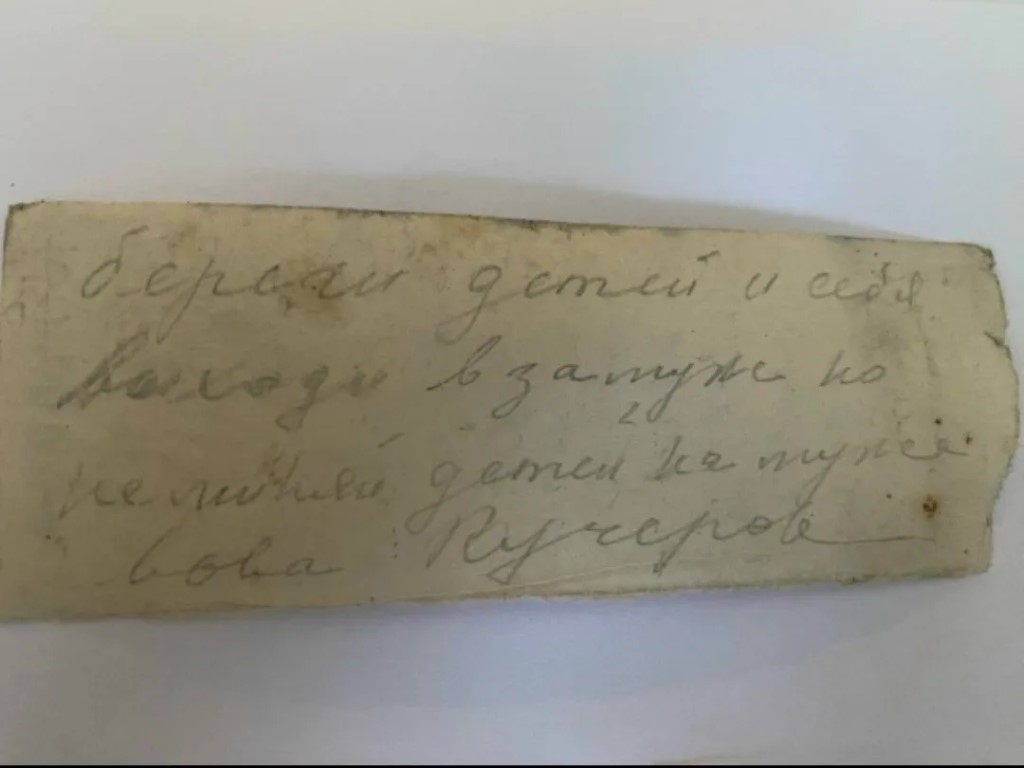 береги детей и себя
выходи в замуж но
не меняй детей на мужа
вова Кучеров